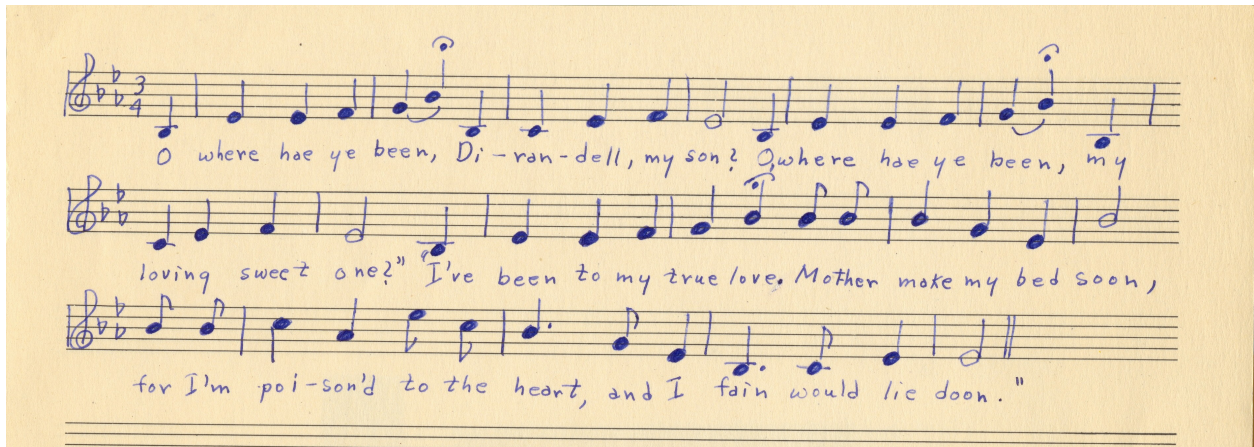 3
4
O where hae ye been, Di-ran-dell, my son? O, where hae ye been, my
loving sweet one?" "I've been to my true love. Mother make my bed soon,
for I'm poi-son'd to the heart, and I fain would lie doon."